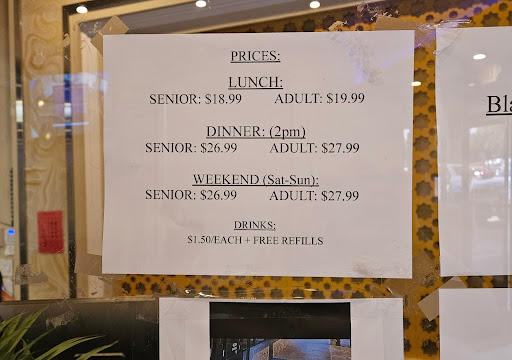 PRICES:
LUNCH:
SENIOR: $18.99 ADULT: $19.99
DINNER: (2pm)
SENIOR: $26.99 ADULT: $27.99
WEEKEND (Sat-Sun):
SENIOR: $26.99 ADULT: $27.99
DRINKS:
$1.50/EACH + FREE REFILLS